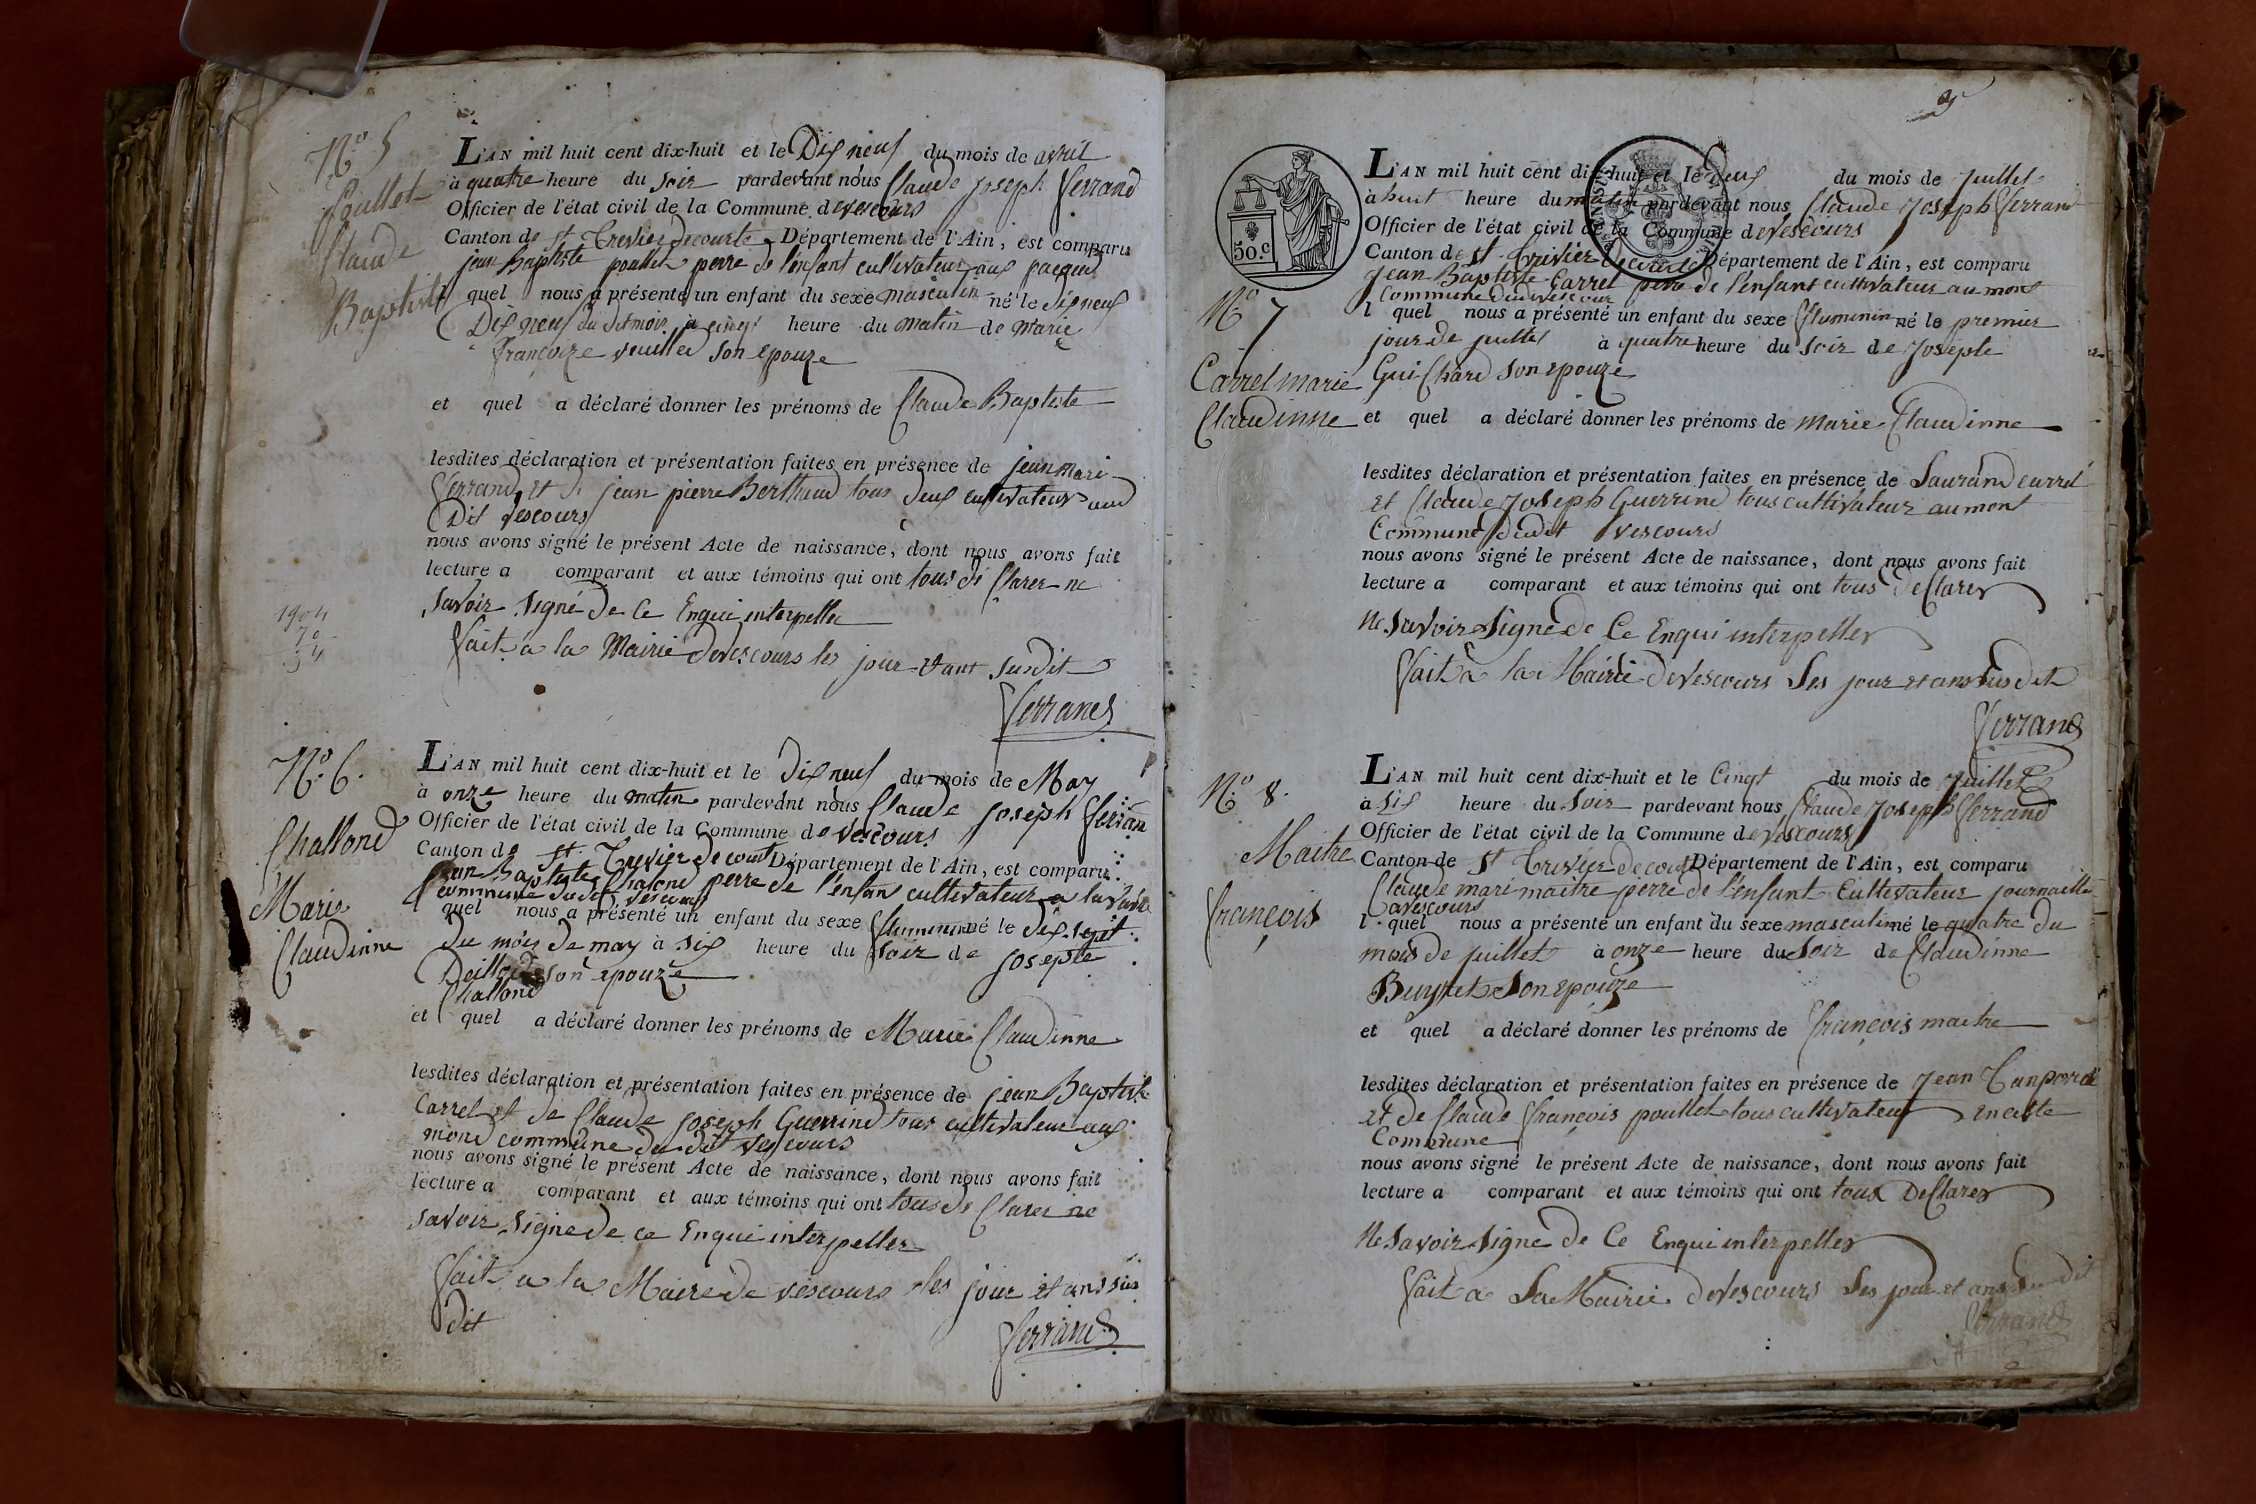 N.o 5
Poullet
Claude
Baptiste
L'AN mil huit cent dix-huit et le Dix neuf du mois de avril
à quatre heure du soir pardevant nous Claude joseph fferrand
Officier de l'état civil de la Commune de vescours
Canton de St Trevier de courte Département de l'Ain, est comparu
jean Baptiste poullet perre de l'enfant cultivateur aux
quel nous a présenté un enfant du sexe masculin né le dix neuf
Dix neuf du dit mois à cinq heure du matin de Marie
françoize son epouze
et quel a déclaré donner les prénoms de Claude Baptiste
lesdites déclaration et présentation faites en présence de jean mari
fferrand et de jean pierre Berthaud tous deux cultivateurs aud
Dit vescours
nous avons signé le présent Acte de naissance, dont nous avons fait
lecture a comparant et aux témoins qui ont tous de Clarer ne
savoir signé de Ce Enquie interpeller
ffait a la Mairie devescours les jour et ant susdit
fferrand
1904
70
34
N.o 6.
Challond
Marie
Claudinne
L'AN mil huit cent dix-huit et le dix neuf du mois de May
à onze heure du matin pardevant nous Claude joseph fferran
Officier de l'état civil de la Commune de vescours
Canton de St. Trevier de court Département de l'Ain, est comparu
jean Baptiste Chalond perre de l'enfan cultivateur a
commune du dit vescours
quel nous a présenté un enfant du sexe ffeminin né le dix sept
du mois de may à six heure du soir de josepte
son epouze
Challond
et quel a déclaré donner les prénoms de Marie Claudinne
lesdites déclaration et présentation faites en présence de jean Baptiste
Carrel et de Claude joseph Guerrind tous cultivateur aux
mond commune du dit vescours
nous avons signé le présent Acte de naissance, dont nous avons fait
lecture a comparant et aux témoins qui ont tous de Clarer ne
savoir signe de ce Enqui interpeller
ffait a la Maire de vescours les jour et ans sus
dit
fferrand
50.c
N.o 7
Carrel marie
Claudinne
L'AN mil huit cent dix-huit et le deux du mois de juillet
à huit heure du matin pardevant nous Claude joseph fferrand
Officier de l'état civil de la Commune devescours
Canton de St Trivier de courte Département de l'Ain, est comparu
jean Baptiste Carrel perre de l'enfant cultivateur au mont
Commune dudit vescour
l quel nous a présenté un enfant du sexe ffluminin né le premier
jour de juillet à quatre heure du soir de josepte
Guichard son epouze
et quel a déclaré donner les prénoms de marie Claudinne
lesdites déclaration et présentation faites en présence de Laurand carrel
et Claude joseph Guerrind tous cultivateur au mont
Commune dudit vescours
nous avons signé le présent Acte de naissance, dont nous avons fait
lecture a comparant et aux témoins qui ont tous deClarer
Ne savoir signe de Ce Enqui interpeller
ffait a la Mairie devescours les jour et ans sus dit
fferrand
N.o 8.
Maitre
françois
L'AN mil huit cent dix-huit et le Cinqt du mois de juillet
à six heure du soir pardevant nous Claude joseph fferrand
Officier de l'état civil de la Commune devescours
Canton de St Trivier de court Département de l'Ain, est comparu
Claude mari maitre perre de l'enfant Cultivateur journaillé
avescours
l quel nous a présenté un enfant du sexe masculin né le quatre du
mois de juillet à onze heure du soir de Claudinne
son epouze
et quel a déclaré donner les prénoms de françois maitre
lesdites déclaration et présentation faites en présence de jean
et de Claude françois poullet tous cultivateur en cette
Commune
nous avons signé le présent Acte de naissance, dont nous avons fait
lecture a comparant et aux témoins qui ont tous DeClarer
Ne savoir signe de Ce Enqui interpeller
ffait a La Mairie devescours les jour et ans su dit
fferrand